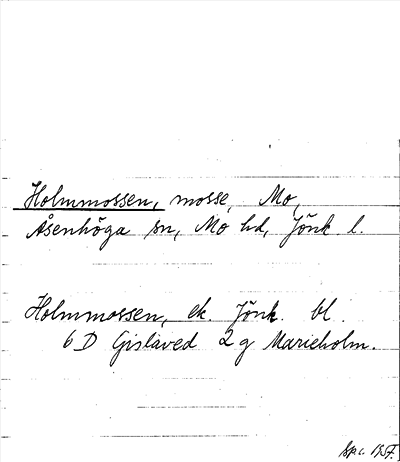 Holmmossen, mosse, Mo,
Åsenhöga sn, Mo hd, Jönk. l.
Holmmossen, ek. Jönk. bl.
6 D Gislaved 2 g Marieholm.